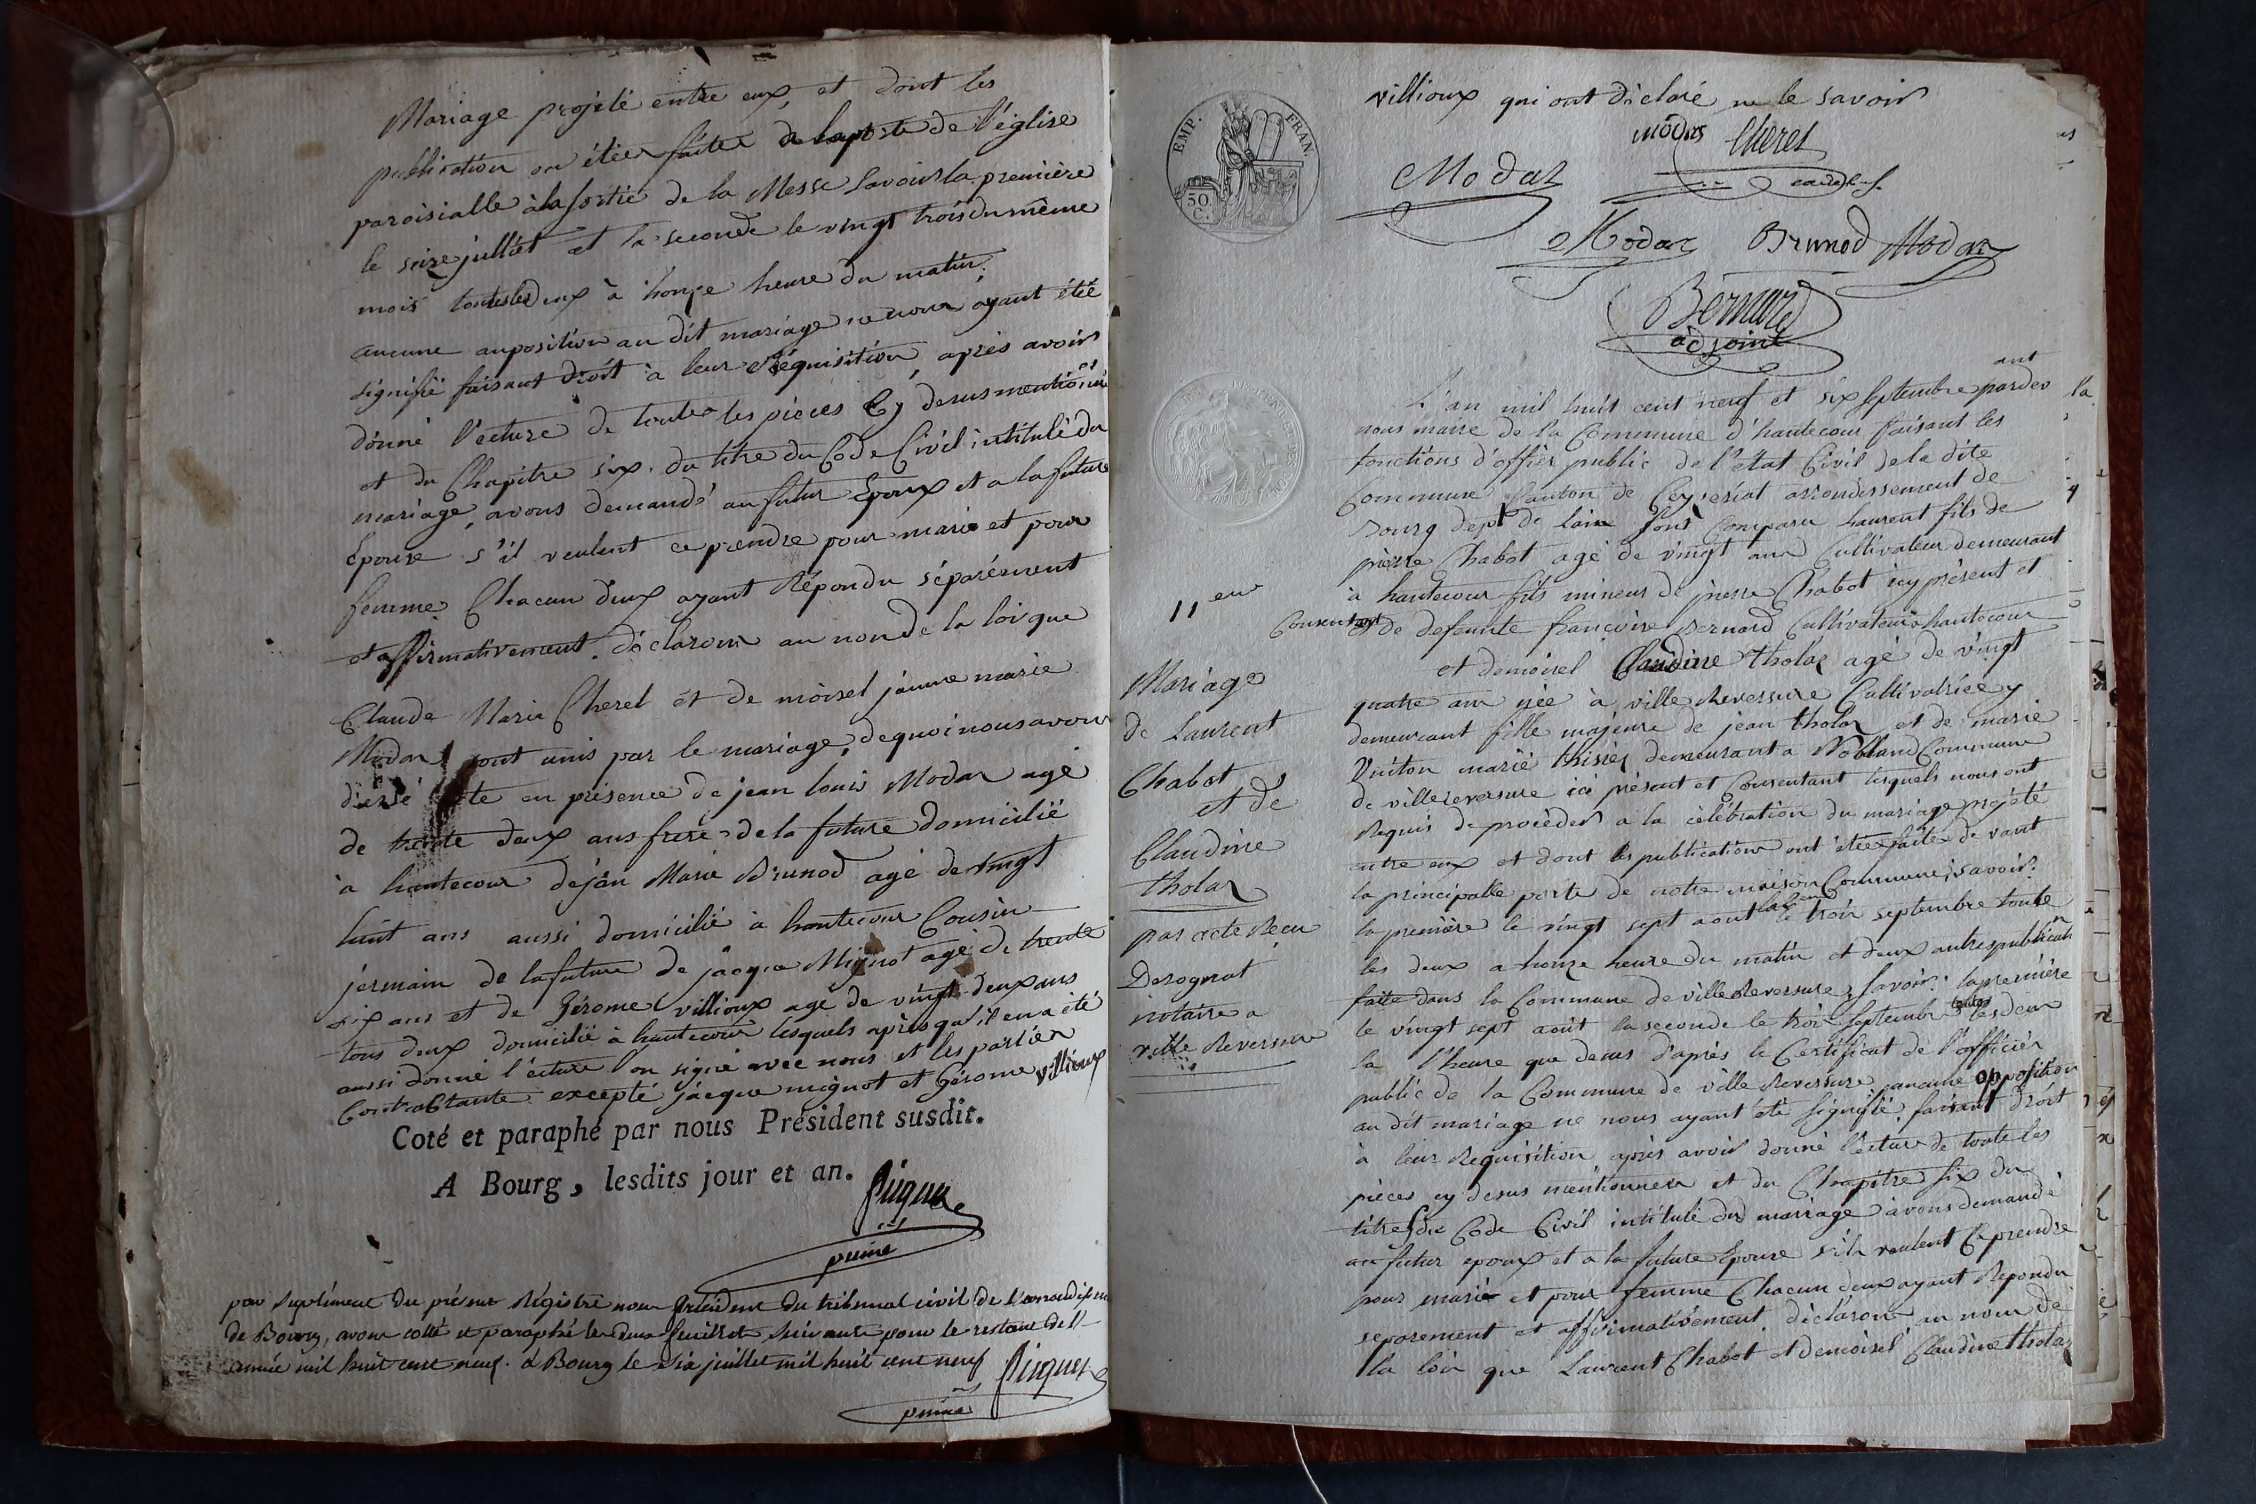 Mariage projeté entre eux, et dont les
publication on étée faitte de la porte de l'église
paroisialle à la sortie de la Messe Savoir la première
le seize jullet et la seconde le vingt trois du même
mois toutes les deux à honze heure du matin;
aucune auposition au dit mariage ne nous ayant étée
signifié faisant droit à leur Réquisition, après avoir
donné l'ecture de toutes les pièces Cy desus mentionnée
et du Chapitre six. du titre du Code Civil intitulé du
mariage, avons demandé au futur Epoux et a la future
Epouse s'il veulent ce prendre pour marie et pour
femme Chacun d'eux ayant Répondu séparément
et affirmativement. déclarons au non de la loi que
Claude Marie Cherel et de moisel jeanne marie
Modas sont unis par le mariage, de quoi nous avons
en présence de jean louis Modas agé
de trente deux ans frere de la future domicilié
à hautecour de jean Marie Brunod agé de vingt
huit ans aussi domicilié à hautecour Cousin
jermain de la future de jacque Mignot agé de trente
six ans et de Gérome villioux age de vingt deux ans
tous deux domicilié à hautecour lesquels après qu'il en a été
aussi donné l'écture l'on signé avec nous et les partïes
Contractante excepté jacque mignot et Gérome villioux
Coté et paraphé par nous Président susdit.
A Bourg, lesdits jour et an.
par suplément du présent Régistre nous président du tribunal civil de l'
de Bourg, avons cotté et paraphé les deux feuillets suivants pour le restant de l'
année mil huit cent neuf. à Bourg le six juillet mil huit cent neuf
EMP. FRAN.
50 C.
villioux qui ont déclaré ne le savoir
modas Cherel
Modas
Modas Brunod Modas
Bernard
adjoint
L'an mil huit cent neuf et six septembre pardevant
nous maire de la Commune d'hautecour faisant les
fonctions d'offier public de l'état Civil de la dite
Commune Canton de Ceyzeriat arrondissement de
Bourg dept de lain sont Comparu Laurent fils de
pierre Chabot agé de vingt ans Cultivateur demeurant
à hautecour fils mineur de pierre Chabot icy présent et
Consentant et de defeunte françoise Bernard Cultivateur à hautecour
et demoisel Claudine tholas agé de vingt
quatre ans née à ville Reversure Cultivatrice y
demeurant fille majeure de jean tholas et de marie
demeurant a Nobland Commune
de villereversure ici présent et Consentant lesquels nous ont
Requis de procéder a la célébration du mariage projeté
entre eux et dont les publications ont étée faite de vant
la principalle porte de notre maison Commune; savoir:
la première le vingt sept aout la 2em le trois septembre toute
les deux a honze heure du matin et deux autres publication
faite dans la Commune de ville Reversure, Savoir: la première
le vingt sept août la seconde le trois septembre toutes les deux
la l'heure que desus d'après le Certificat de l'officier
public de la Commune de ville Reversure, aucune opposition
au dit mariage ne nous ayant été signifié, faisant droit
à leur Requisition après avoir donné l'écture de toute les
pièces cy desus mentionnées et du Chapitre six du
titre du Code Civil intitulé du mariage avons demandé
au futur epoux et a la future Epouse s'ils veulent ce prendre
pour marié et pour femme Chacun deux ayant Repondu
séparement et affirmativement, déclarons au nom de
la loi que Laurent Chabot et demoisel Claudine tholas
11 em
Mariage
de Laurent
Chabot
et de
Claudine
tholas
par acte Recu
Derognat
notaire a
ville Reversure